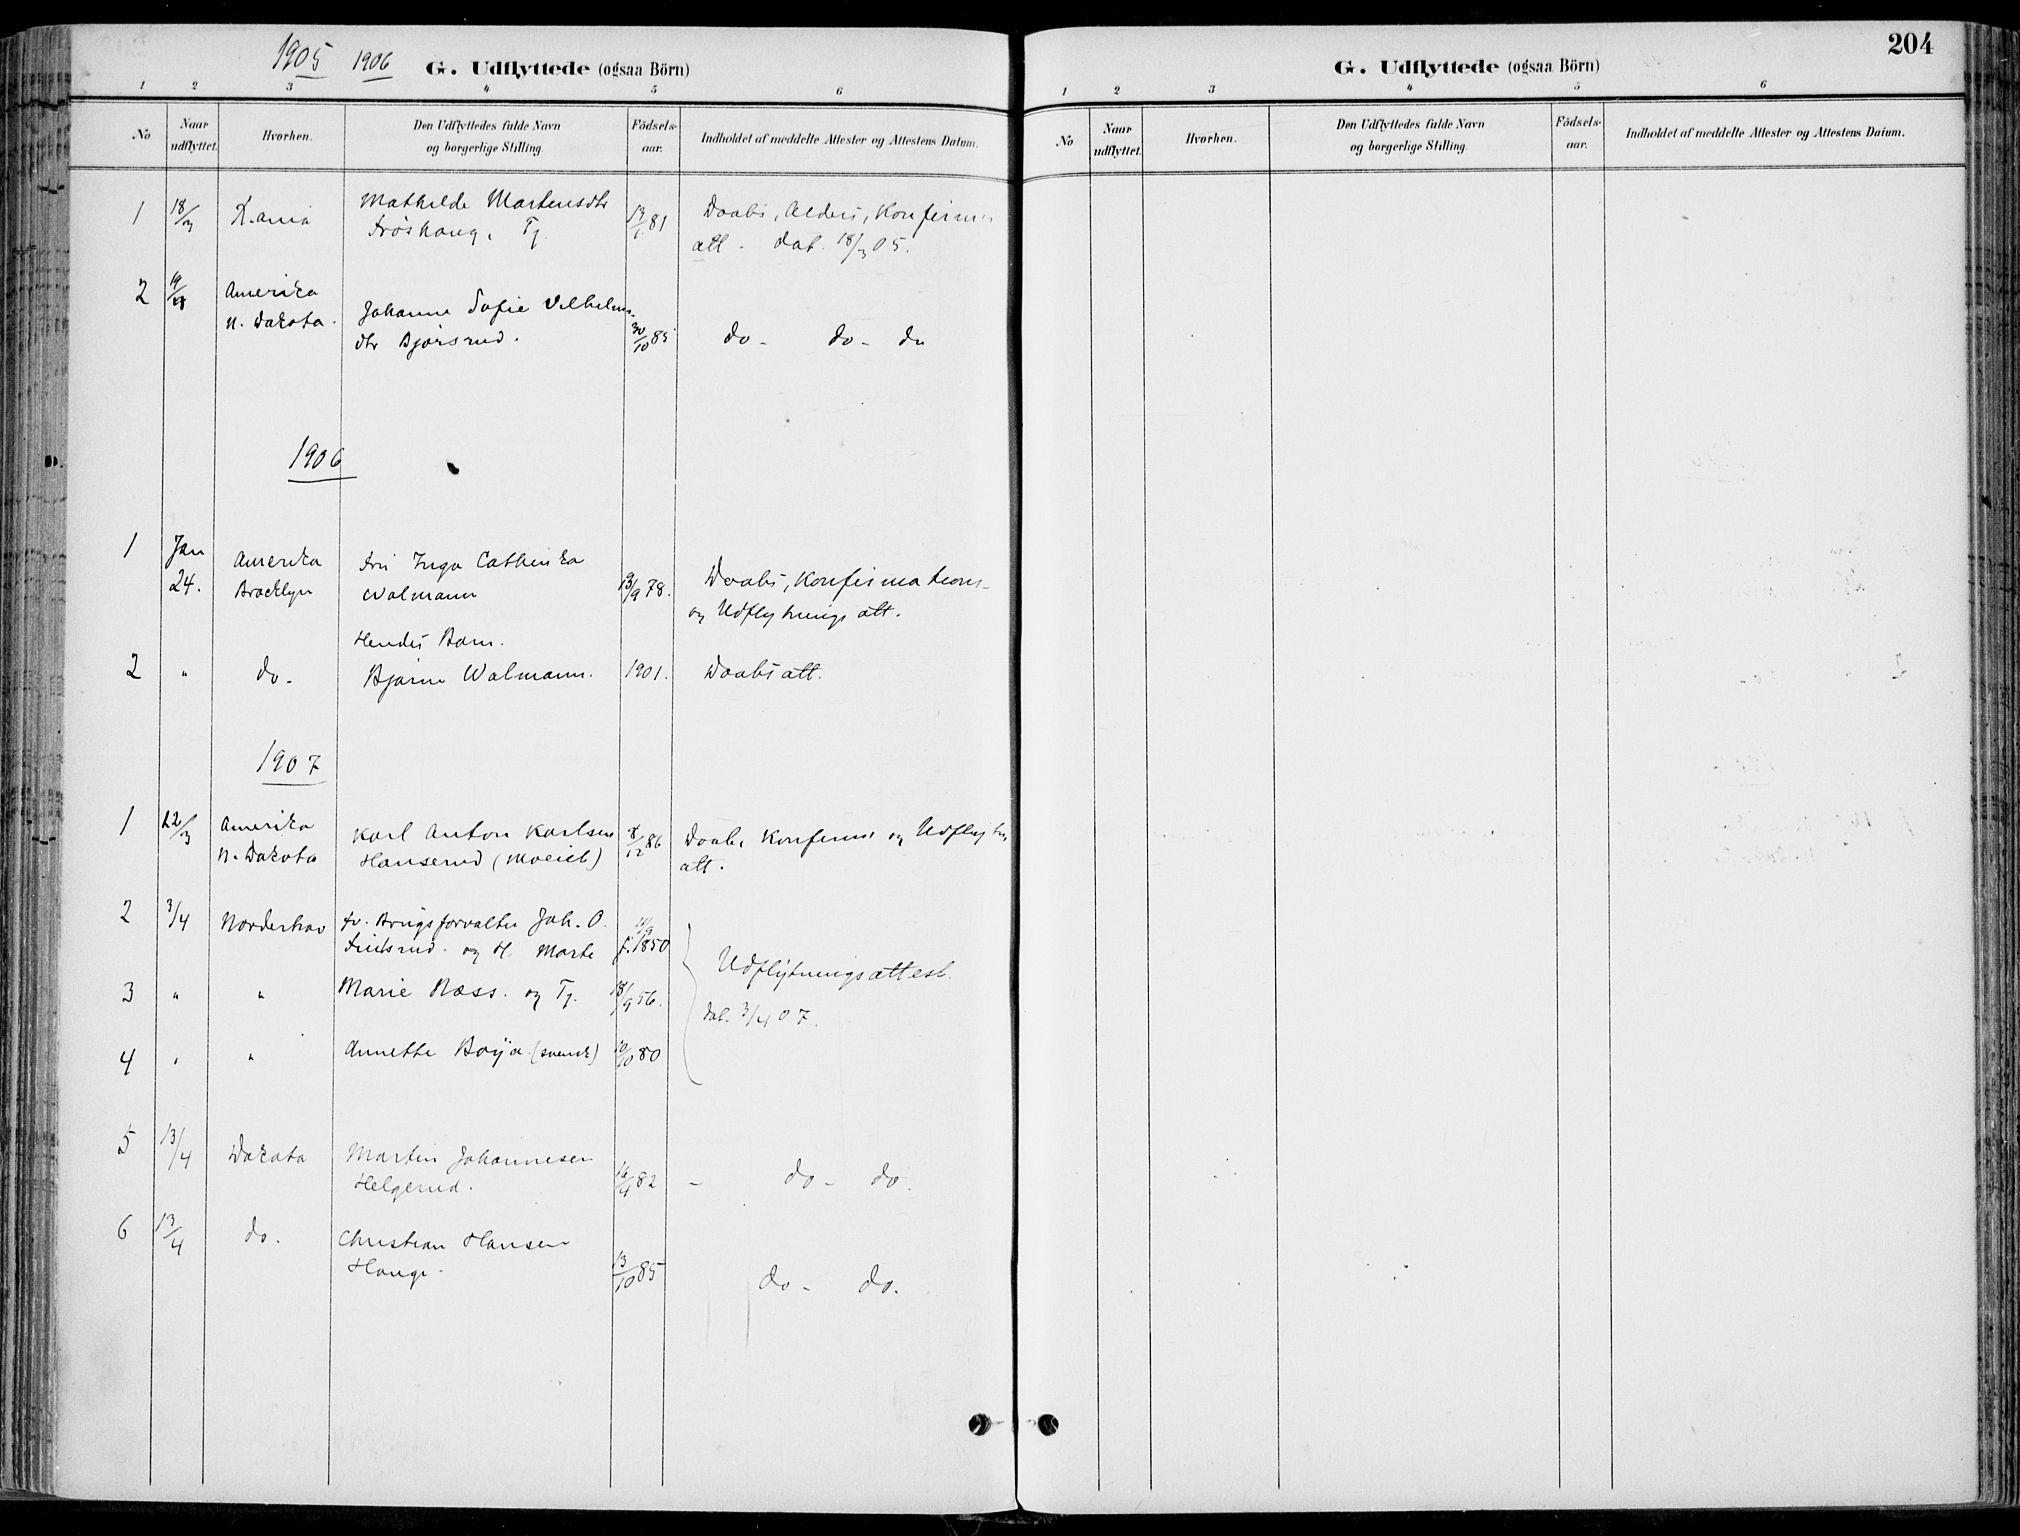 1905 1906 G. Udflyttede (ogsaa Börn)
1 2 3 4 5 6
No Naar udflyttet. Hvorhen. Den Udflyttedes fulde Navn og borgerlige Stilling. Födsels-aar. Indholdet af meddelte Attester og Attestens Datum.
1 18/3 K.ania Mathilde Martensdtr 13/1 81 Daabs, Alders, Konfirm
Tj. att. dat. 18/3 05.
2 19/4 Amerika Johanne Sofie Vilhelms-
N. Dakota. dtr Bjørsrud. 30/10 85 do - do - do
1906
1 Jan Amerika Fru Inga Cathinka
24. Brocklyn Walmann 19/9 78. Daabs, Konfirmations-
og Udflytnings att.
Hendes Barn.
2 " do. Bjarne Walmann. 1901. Daabsatt.
1907
1 22/3 Amerika Karl Anton Karlsen 8/12 86 Daabs, Konfirms og Udflytn
N. Dakota Hanserud att.
2 3/4 Norderhov fv. Brugsforvalter Joh. O.
og H. Marte f. 1850
3 " " Marie Næss. og Tj. 18/9 56. Udflytningsattest.
dat. 3/4 07.
4 " " Annette (svensk) 10/10 80
5 13/4 Dakota Martin Johannesen
Helgerud. 16/4 82 - do - do.
6 13/4 do. Christian Hansen
Hauge. 13/10 85 do - do.
204
G. Udflyttede (ogsaa Börn)
1 2 3 4 5 6
No Naar udflyttet. Hvorhen. Den Udflyttedes fulde Navn og borgerlige Stilling. Födsels-aar. Indholdet af meddelte Attester og Attestens Datum.